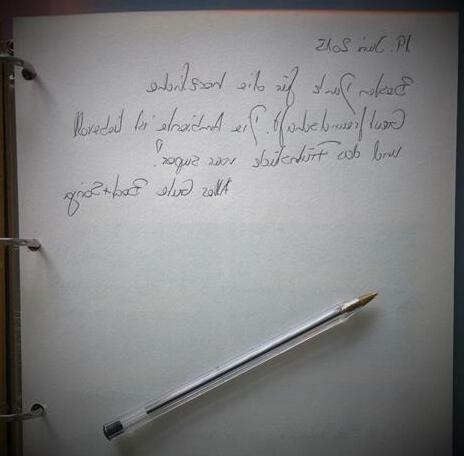 19. Juni 2015
Besten Dank für die herzliche
Gastfreundschaft. Die Ambiente ist liebevoll
und das Frühstück war super!
Alles Gute Beat+Sonja